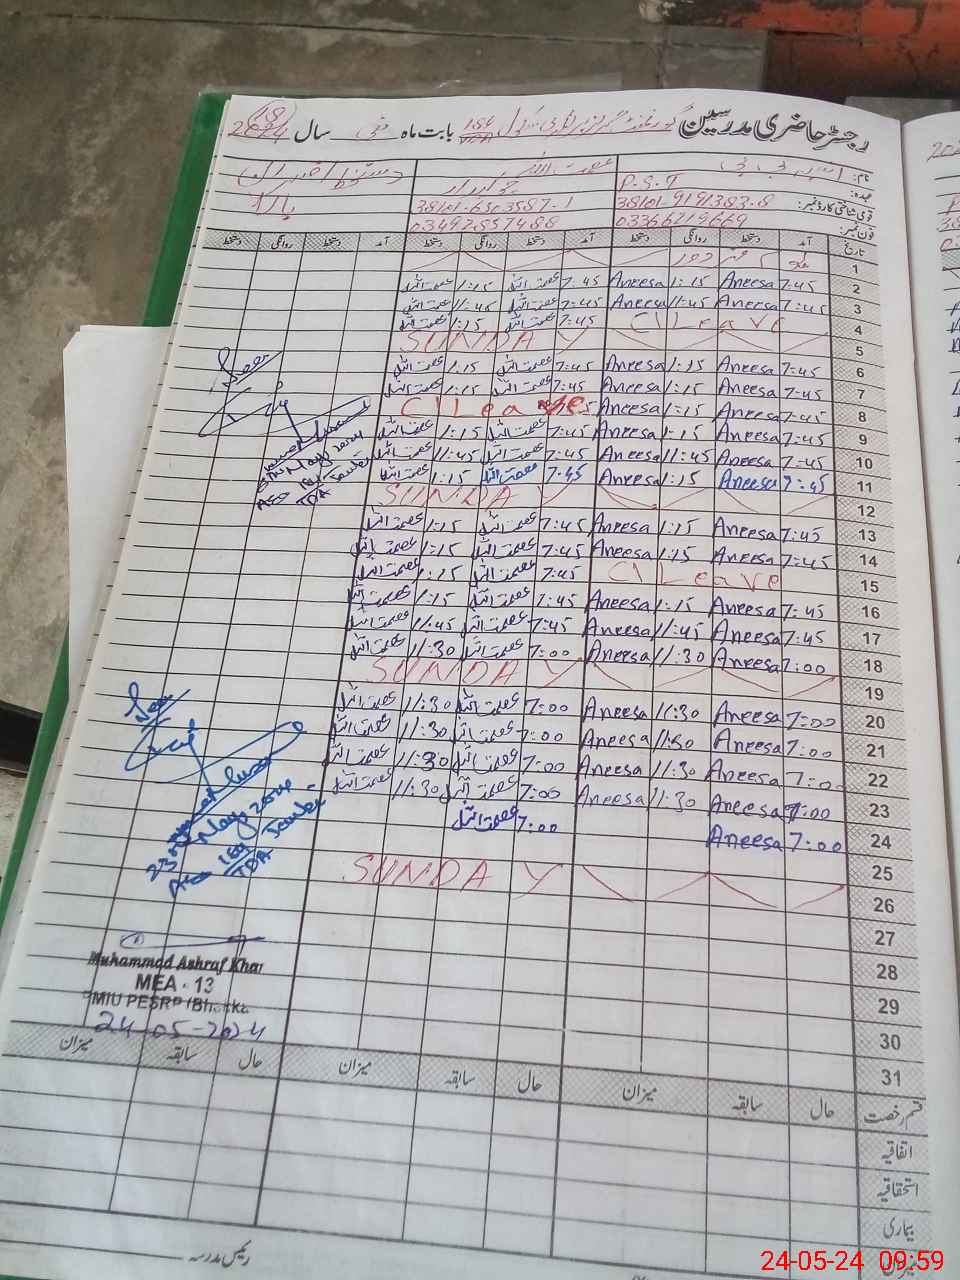 رجسٹر حاضری مدرسین گورنمنٹ گرلز پرائمری سکول 186 TDA بابت ماہ مئی سال 2024
نام:
عہدہ: P.S.T چوکیدار
قومی شناختی کارڈ نمبر: 38101-9191383-8 38101-6303587-1
فون نمبر: 03366219669 03492557488
تاریخ آمد دستخط روانگی دستخط آمد دستخط روانگی دستخط آمد دستخط روانگی دستخط
1
2 7:45 Aneesa 1:15 Aneesa 7:45 عصمت اللہ 1:15 عصمت اللہ
3 7:45 Aneesa 11:45 Aneesa 7:45 عصمت اللہ 11:45 عصمت اللہ
4 Cl Leave 7:45 عصمت اللہ 1:15 عصمت اللہ
5 SUNDAY
6 7:45 Aneesa 1:15 Aneesa 7:45 عصمت اللہ 1:15 عصمت اللہ
7 7:45 Aneesa 1:15 Aneesa 7:45 عصمت اللہ 1:15 عصمت اللہ
8 7:45 Aneesa 1:15 Aneesa Cl Leave
9 7:45 Aneesa 1:15 Aneesa 7:45 عصمت اللہ 1:15 عصمت اللہ
10 7:45 Aneesa 11:45 Aneesa 7:45 عصمت اللہ 11:45 عصمت اللہ
11 7:45 Aneesa 1:15 Aneesa 7:45 عصمت اللہ 1:15 عصمت اللہ
12 SUNDAY
13 7:45 Aneesa 1:15 Aneesa 7:45 عصمت اللہ 1:15 عصمت اللہ
14 7:45 Aneesa 1:15 Aneesa 7:45 عصمت اللہ 1:15 عصمت اللہ
15 Cl Leave 7:45 عصمت اللہ 1:15 عصمت اللہ
16 7:45 Aneesa 1:15 Aneesa 7:45 عصمت اللہ 1:15 عصمت اللہ
17 7:45 Aneesa 11:45 Aneesa 7:45 عصمت اللہ 11:45 عصمت اللہ
18 7:00 Aneesa 11:30 Aneesa 7:00 عصمت اللہ 11:30 عصمت اللہ
19 SUNDAY
20 7:00 Aneesa 11:30 Aneesa 7:00 عصمت اللہ 11:30 عصمت اللہ
21 7:00 Aneesa 11:30 Aneesa 7:00 عصمت اللہ 11:30 عصمت اللہ
22 7:00 Aneesa 11:30 Aneesa 7:00 عصمت اللہ 11:30 عصمت اللہ
23 7:00 Aneesa 11:30 Aneesa 7:00 عصمت اللہ 11:30 عصمت اللہ
24 7:00 Aneesa 7:00 عصمت اللہ
25
26 SUNDAY
27
28
29
30
31
Seen
May 2024
TDA
Seen
23 May 2024
TDA
Muhammad Ashraf Khan
MEA - 13
PMIU PESRP (Bhakkar
24-05-2024
قسم رخصت حال سابقہ میزان حال سابقہ میزان حال سابقہ میزان
اتفاقیہ
استحقاقیہ
بیماری
میزان
رئیس مدرسہ
24-05-24 09:59